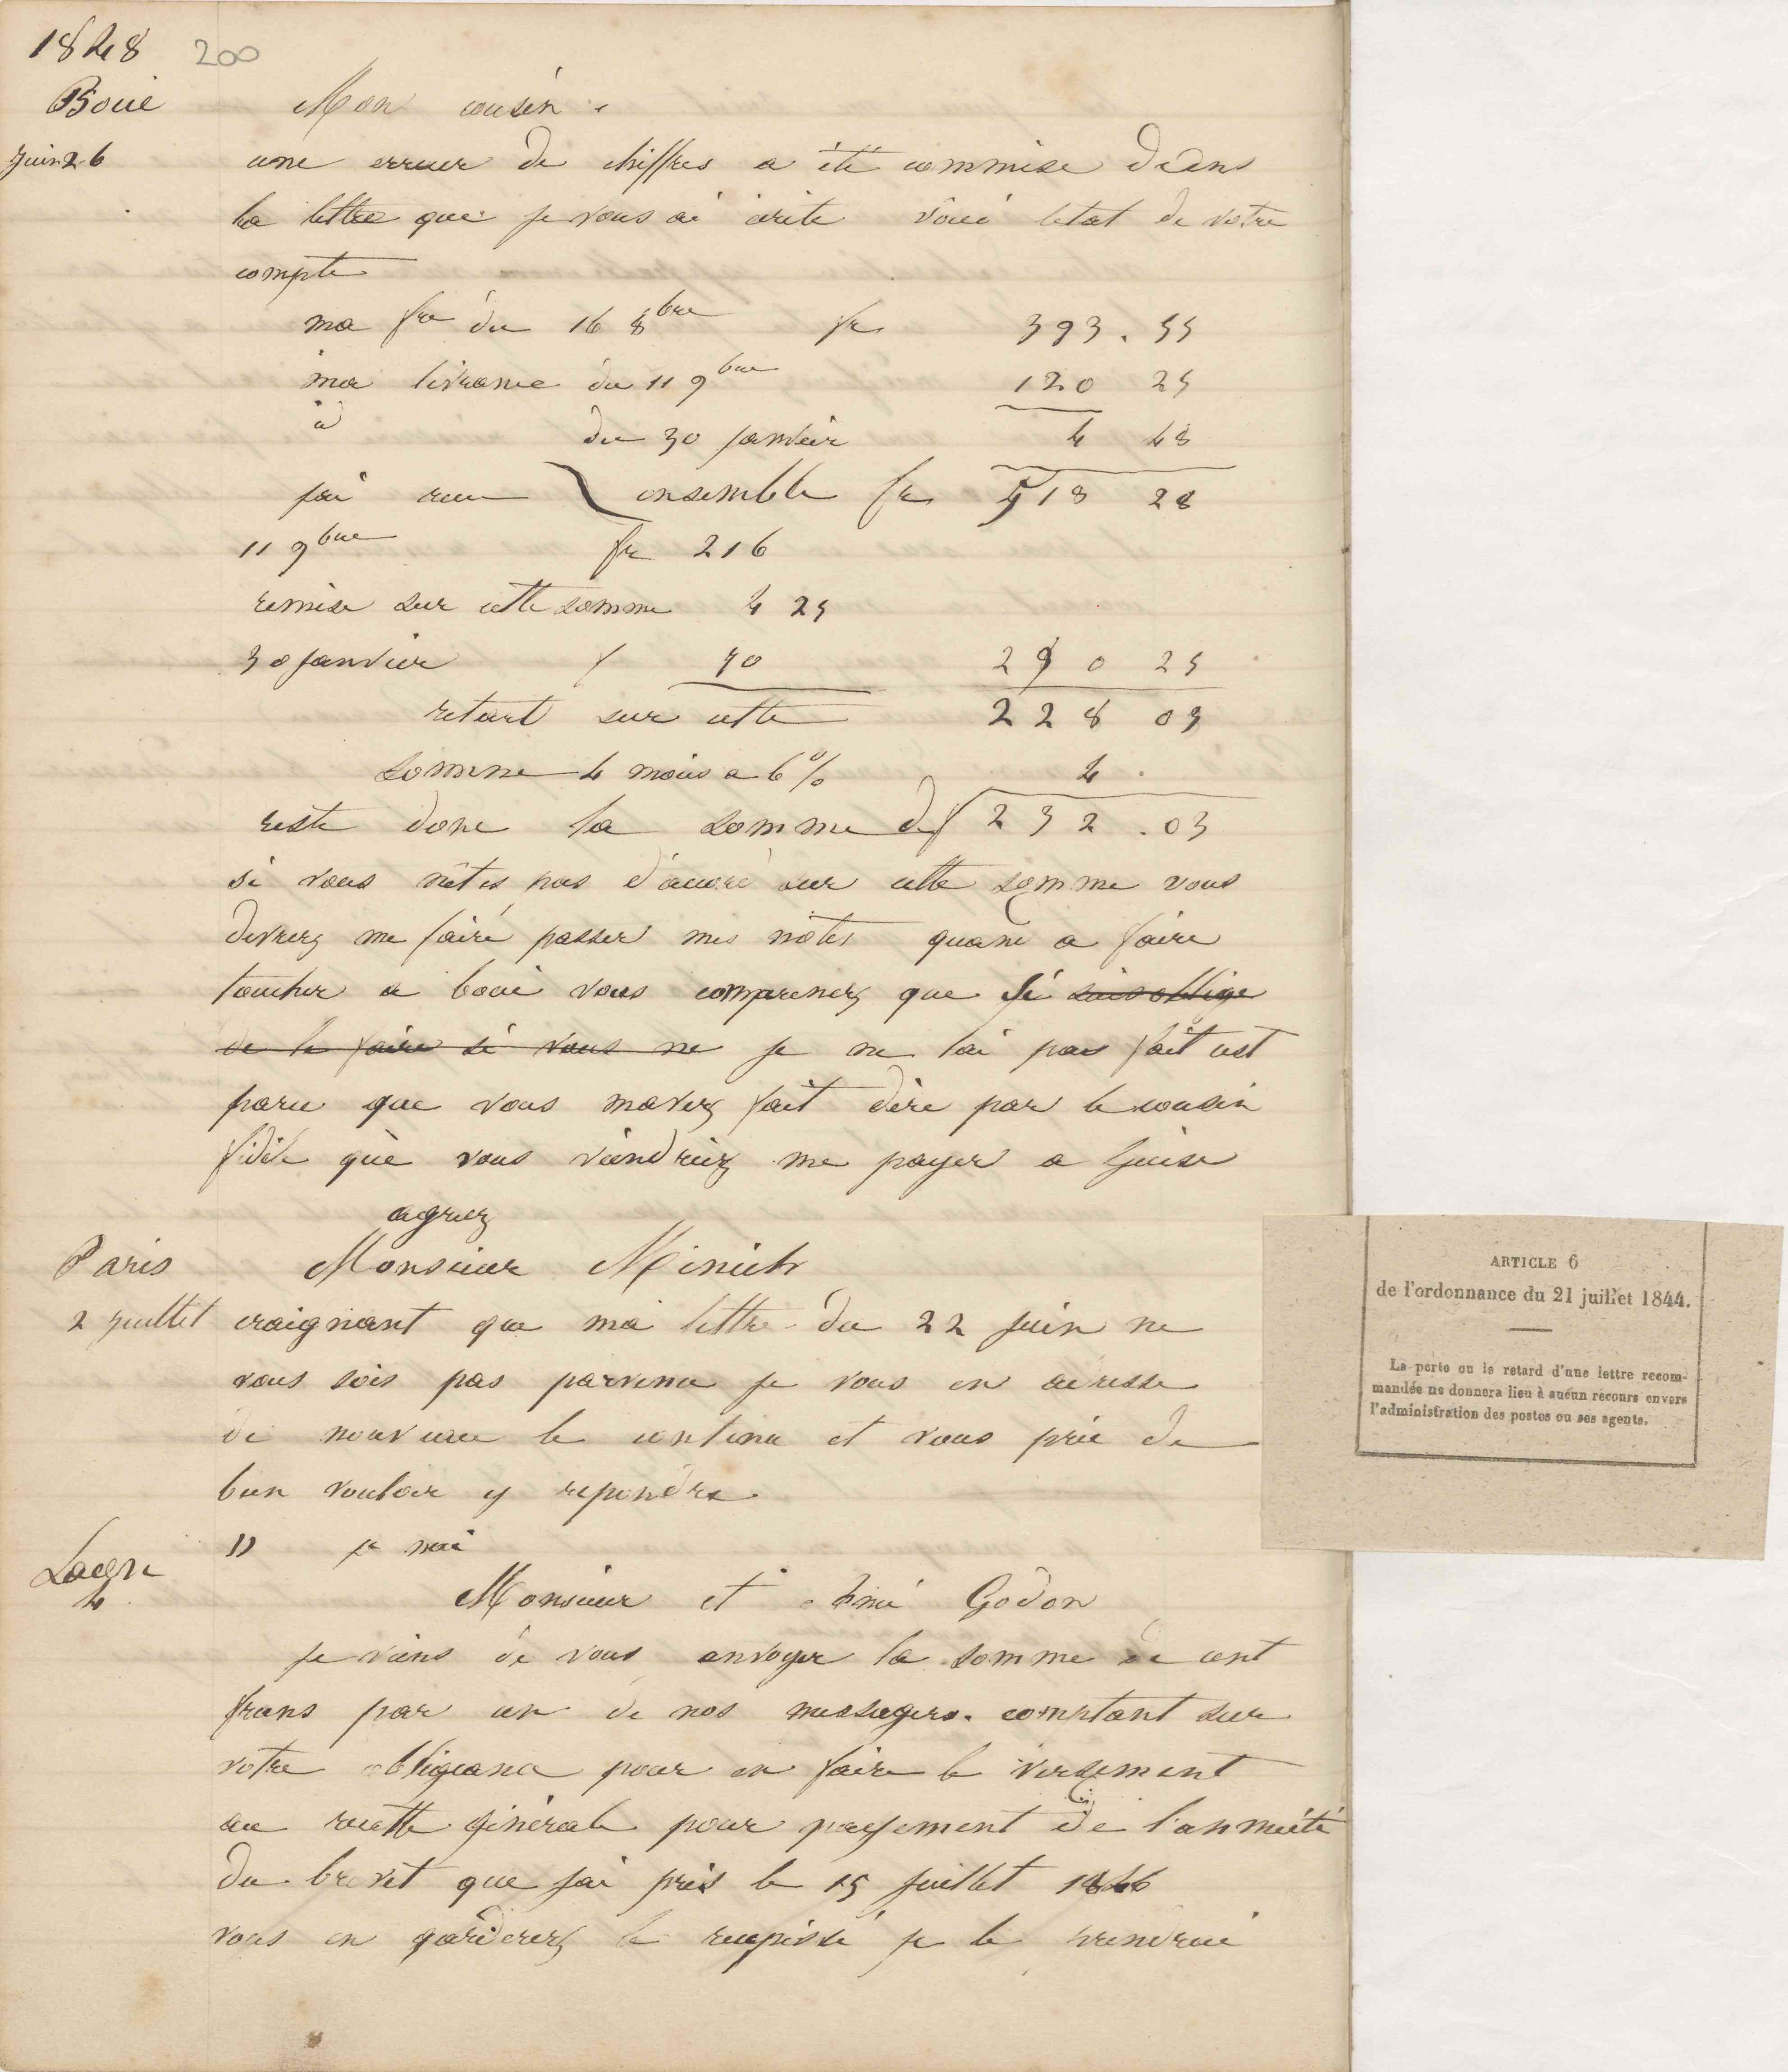 1848 200
Boué Mon cousin.
Juin 26 une erreur de chiffres a été commise dans
la lettre que je vous ai écrite voici letat de votre
compte
ma fre du 16 8bre fr 393.55
ma livrance du 11 9bre 120 25
id du 30 janvier 4 48
jai reçu ensemble fr 518 28
11 9bre fr 216
remise sur cette somme 4 25
30 janvier f 70 290 25
retart sur cette 228 03
somme 4 mois a 6% 4.
reste donc la somme de f 232.03
si vous nêtes pas d'acord sur cette somme vous
devrez me faire passer mes notes quand a faire
toucher a boué vous comprenez que si suis obligé
de le faire si vous ne je ne lai pas fait cest
parce que vous mavez fait dire par le cousin
fidèle que vous viendriez me payer a Guise
agreez
Paris Monsieur Minich
2 juillet craignant que ma lettre du 22 juin ne
vous sois pas parvenu je vous en adresse
de nouveau le contenu et vous prie de
bien vouloir y repondre
" je n'ai
Laon
4 Monsieur et ami Godon
je viens de vous envoyer la somme de cent
frans par un de nos messagers. comptant sur
votre obligeance pour en faire le versement
au recette générale pour payement de l'annuité
du brevet que jai pris le 15 juillet 1846
vous en garderez le recepissé je le prendrai
ARTICLE 6
de l'ordonnance du 21 juillet 1844.
La perte ou le retard d'une lettre recom-
mandée ne donnera lieu à aucun recours envers
l'administration des postes ou ses agents.